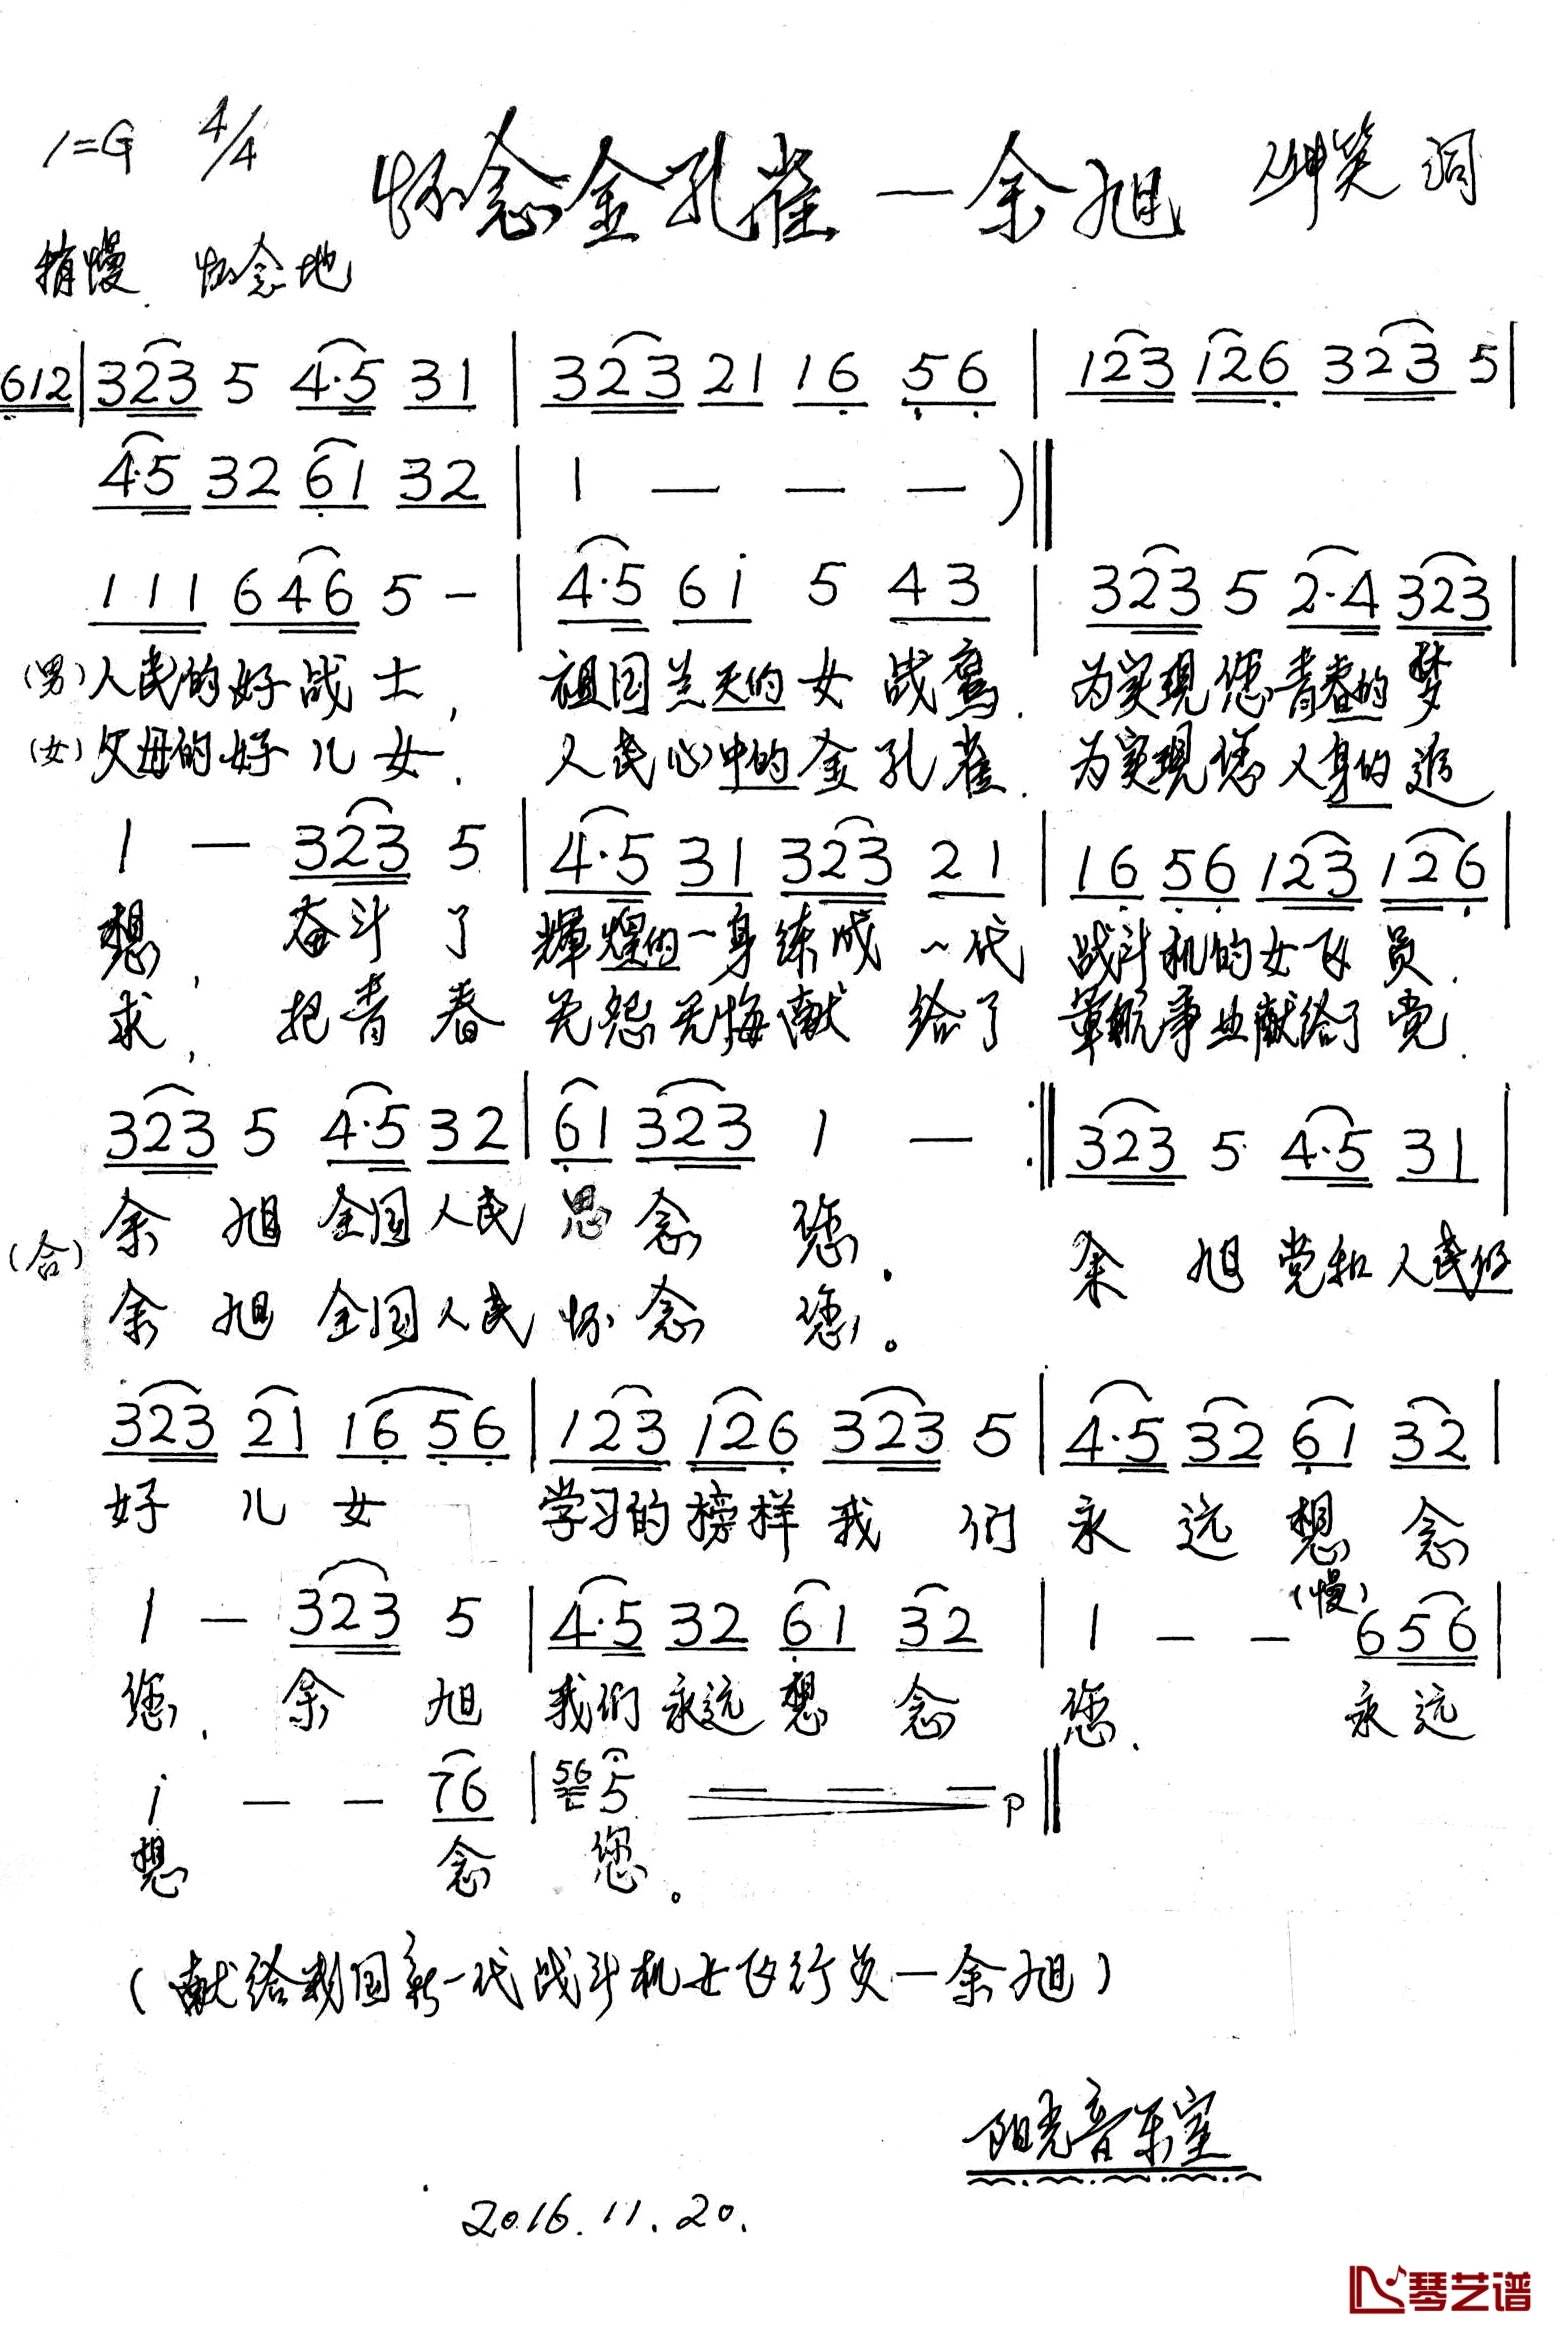 1=G 4/4 怀念金孔雀—余旭 坤笑 词
稍慢 怀念地
612 | 323 5 4·5 31 | 323 21 16 56 | 123 126 323 5 |
4·5 32 61 32 | 1 — — — ) ‖
111 646 5 — | 4·5 6i 5 43 | 323 5 2·4 323 |
(男) 人民的好战士, 祖国蓝天的女战鹰. 为实现您青春的梦
(女) 父母的好儿女. 人民心中的金孔雀. 为实现您人身的追
1 — 323 5 | 4·5 31 323 21 | 16 56 123 126 |
想, 奋斗了 輝煌的一身练成一代 战斗机的女飞员.
求, 把青春 无怨无悔献给了 軍航事业献给了党.
323 5 4·5 32 | 61 323 1 — :‖ 323 5 4·5 31 |
余旭全国人民思念您. 余旭党和人民的
(合)
余旭全国人民怀念您。
323 21 16 56 | 123 126 323 5 | 4·5 32 61 32 |
好儿女 学习的榜样我们永远想念
(慢)
1 — 323 5 | 4·5 32 61 32 | 1 — — 656 |
您, 余旭 我们永远想念 您. 永远
i — — 76 | 56 5 — — — p ‖
想 念 您。
(献给我国新一代战斗机女飞行员—余旭)
阳光音乐室
2016.11.20.
琴艺谱